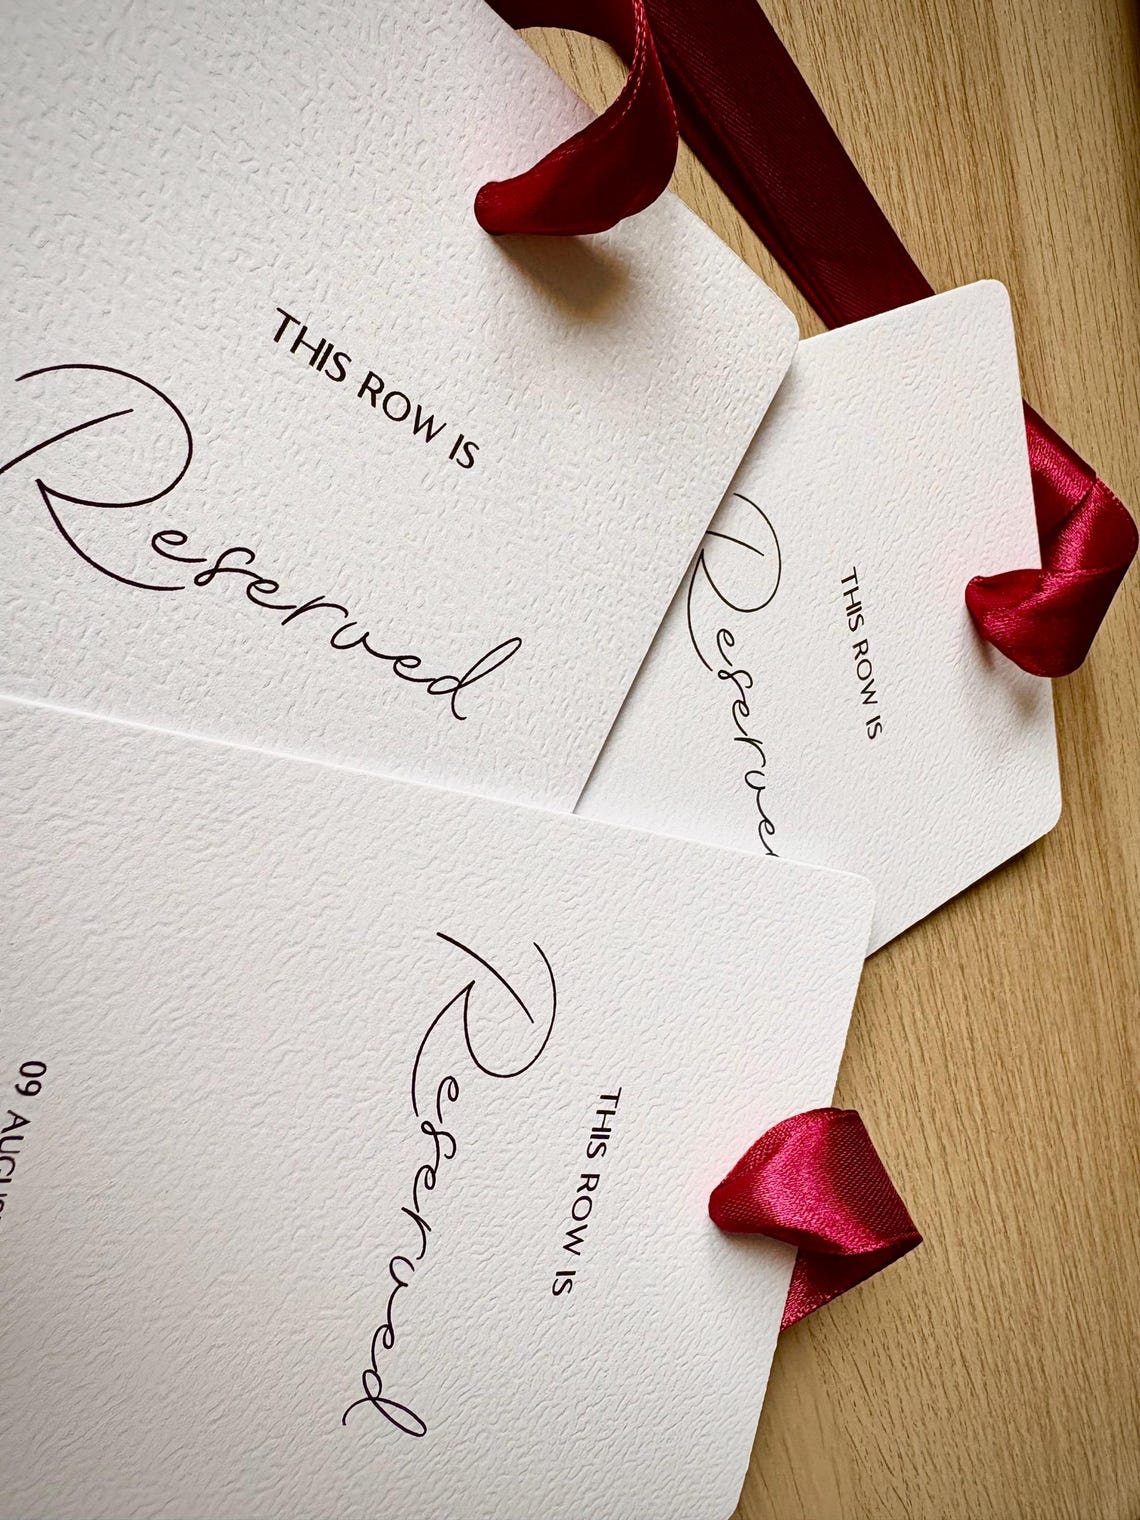 THIS ROW IS
Reserved
THIS ROW IS
Reserved
THIS ROW IS
Reserved
09